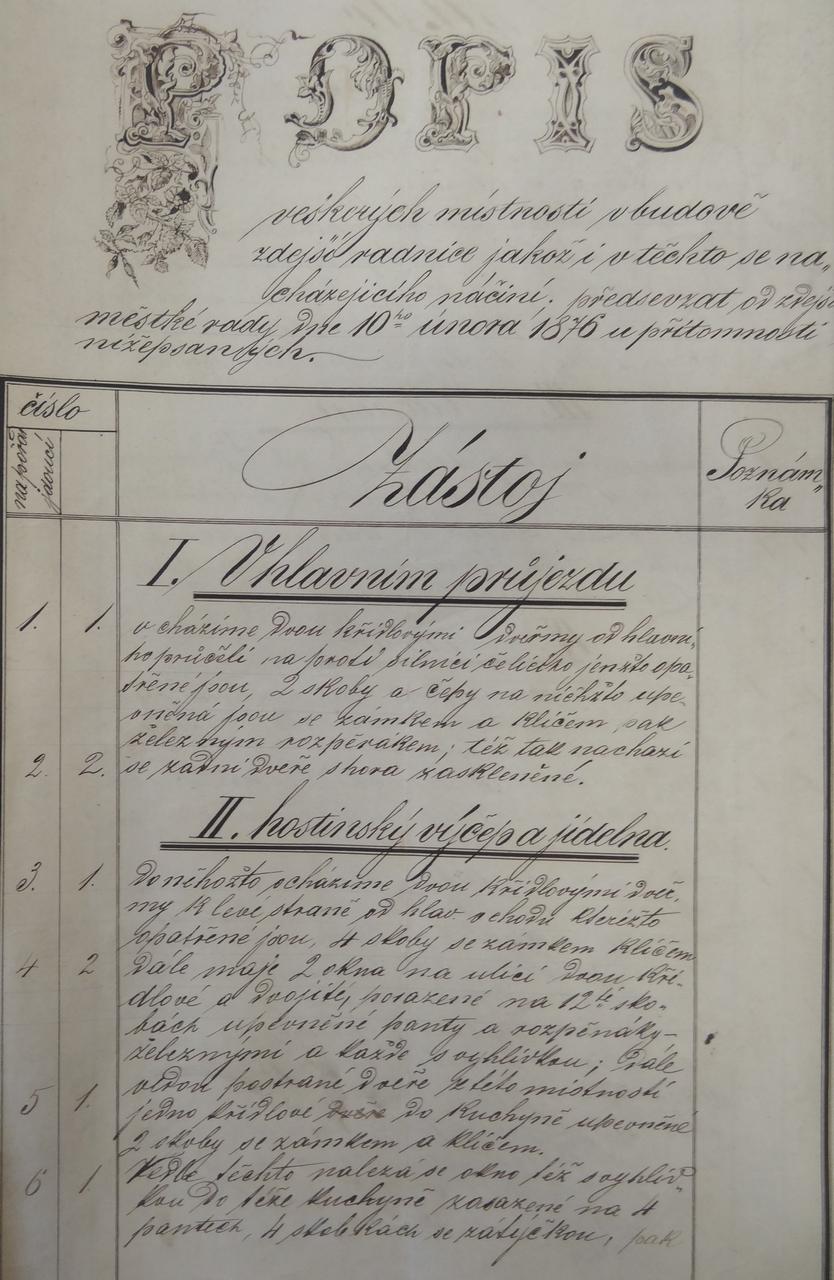 POPIS
veškerých místností v budově
zdejší radnice jakož i v těchto se na„
cházejicího náčiní. předsevzat od zdejší
městké rady dne 10ho února 1876 u přítomnosti
nížepsaných.
číslo
na pořád
jdoucí
Zástoj
Poznám„
ka
I. V hlavním průjezdu
1. 1. v cházíme dvou křídlovými dveřmy od hlavní„
ho průčelí na proti silnici čelícího jenžto opa-
třené jsou, 2 skoby a čepy na nichžto upe-
vněná jsou se zámkem a klíčem pak
železným rozpěrákem; též tak nachází
2. 2. se zadní dveře shora zaskleněné.
II. hostinský výčep a jídelna.
3. 1. do něhožto vcházíme dvou křídlovými dveř„
my k levé straně od hlav. vchodu kterižto
opatřené jsou, 4 skoby se zámkem klíčem
4 2 dále maje 2 okna na ulici dvou kří-
dlové a dvojité, posazené na 12ti sko-
bách upevněné panty a rozpěnáky-
železnými a každé s vyhlívkou; dále
vedou postrané dveře z této místností
5 1. jedno křídlové do kuchyně upevněné
2 skoby se zámkem a klíčem.
6 1 Vedle těchto nalezá se okno též s vyhlív„
kou do téže kuchyně zasazené na 4
pantech, 4 skobkách se zátyčkou, pak